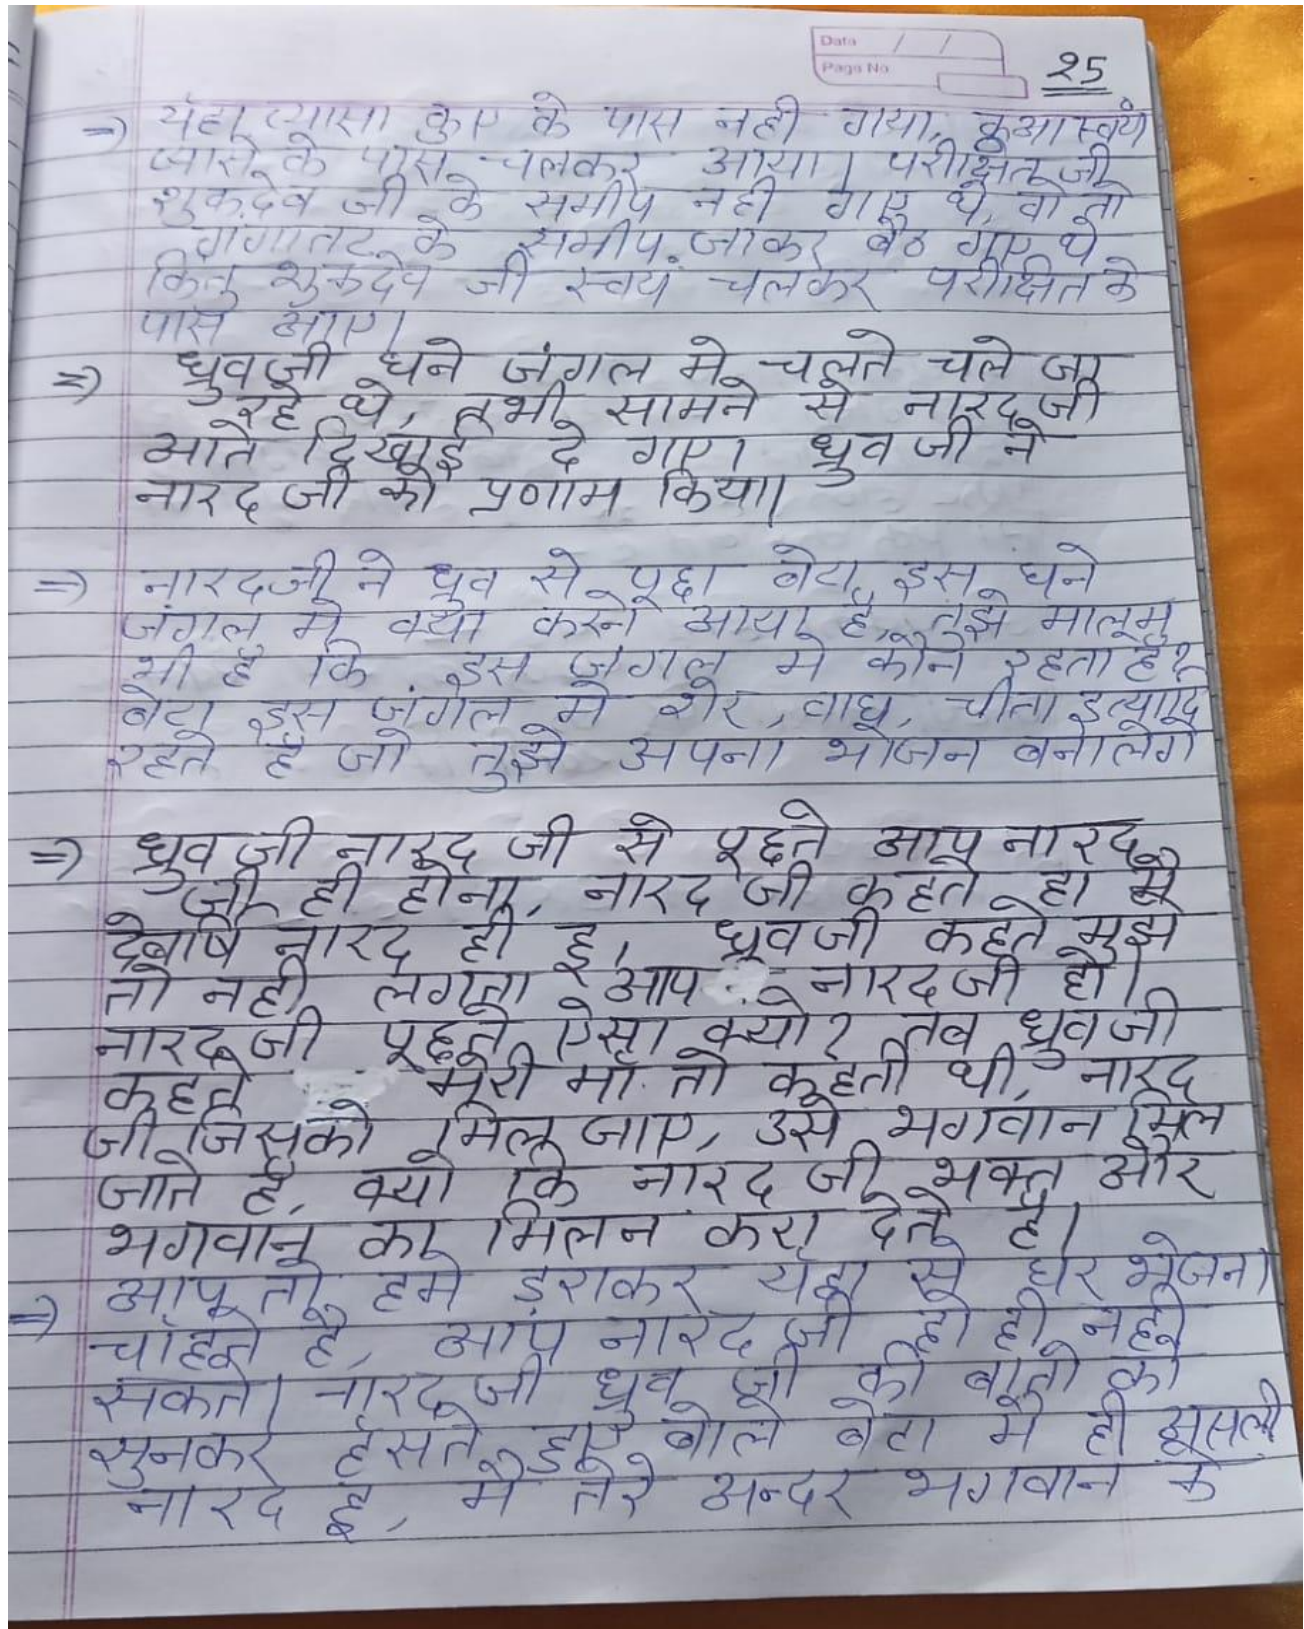 Data / /
Page No
25
=> यंहा प्यासा कुए के पास नही गया, कुआ स्वंय
प्यासे के पास चलकर आया। परीक्षित जी
शुकदेव जी के समीप नही गए थे, वो तो
गंगातट के समीप जाकर बैठ गए थे
किंतु शुकदेव जी स्वयं चलकर परीक्षित के
पास आए।
=> ध्रुवजी घने जंगल मे चलते चले जा
रहे थे, तभी सामने से नारदजी
आते दिखाई दे गए। ध्रुव जी ने
नारद जी को प्रणाम किया।
=> नारदजी ने ध्रुव से पूछा बेटा इस घने
जंगल मे क्या करने आया है, तुझे मालूम
भी है कि इस जंगल मे कौन रहता है?
बेटा इस जंगल मे शेर, वाघ, चीता इत्यादि
रहते है जो तुझे अपना भोजन बनालेगे
=> ध्रुव जी नारद जी से पूछते आप नारद
जी ही होना, नारद जी कहते हा मै
देवर्षि नारद ही हू, ध्रुवजी कहते मुझे
तो नही लगता आप नारदजी हो।
नारद जी पूछते ऐसा क्यो? तब ध्रुव जी
कहते मेरी माँ तो कहती थी, नारद
जी जिसको मिल जाए, उसे भगवान मिल
जाते है, क्यो कि नारद जी भक्त और
भगवान का मिलन करा देते है।
=> आप तो हमे ड़राकर यंहा से घर भेजना
चांहते है, आप नारद जी हो ही नही
सकते। नारद जी ध्रुव जी की बातो को
सुनकर हँसते हुए बोले बेटा मै ही असली
नारद हू, मै तेरे अन्दर भगवान के